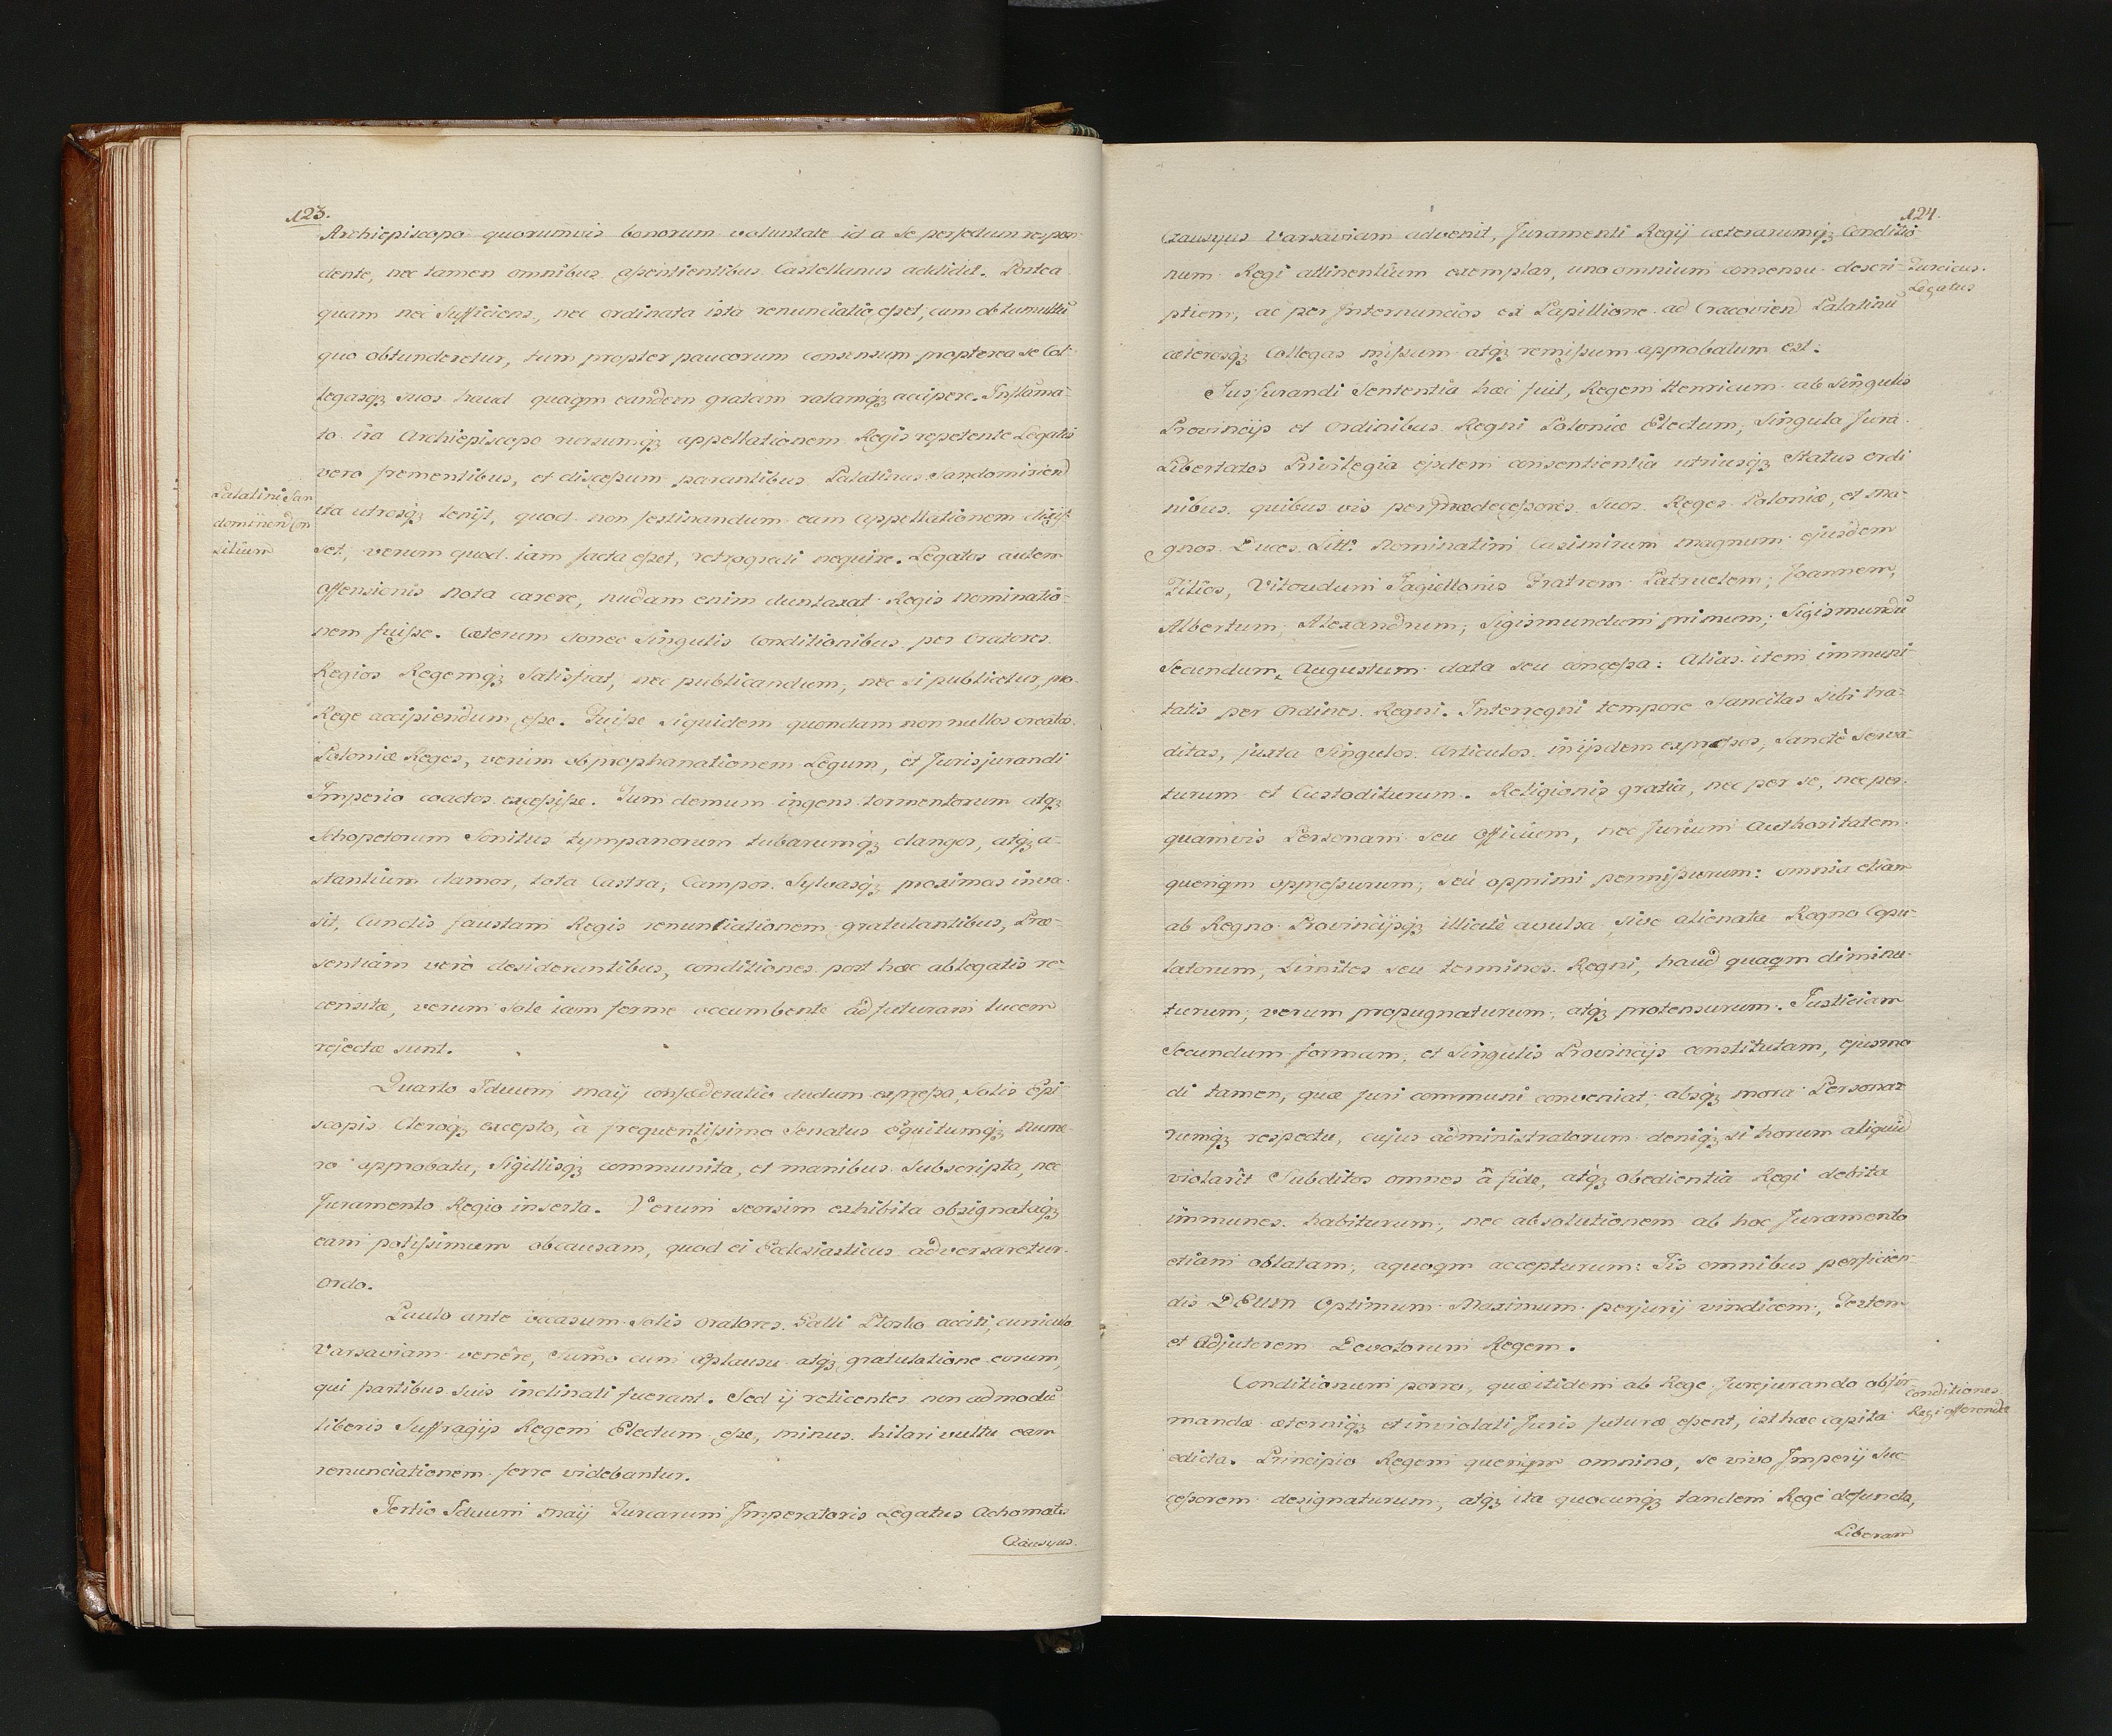 123.
Archiepiscopo quorumvis bonorum voluntate id a se perfectum respon-
dente, nec tamen omnibus aſsentientibus Castellanus addidit. Postea
quam nec Sufficiens, nec ordinata ista renunciatio eſset, cum ob tumultū
quo obtunderetur, tum propter paucorum consensum propterea se Col-
legasq́ꝫ suos haud quaqm eandem gratam ratamq́ꝫ accipere. Inflāma-
to ira Archiepiscopo rursumq́ꝫ appellationem Regis repetente Legatis
vero frementibus, et disceſsum parantibus Palatinus Sandomirien
Palatini San
domirien Con
silium
ita utrosq́ꝫ lenijt, quod non festinandum eam appellationem dixiſ-
set, verum quod iam facta eſset, retrogredi nequire. Legatos autem
offensionis nota carere, nudam enim duntaxat Regis nominatio-
nem fuiſse. Cæterum donec Singulis Conditionibus per Oratores
Regios Regemq́ꝫ Satisfiat, nec publicandum, nec si publicetur, pro
Rege accipiendum eſse. Fuiſse siquidem quondam non nullos creatos
Poloniæ Reges, verum ob prophanationem Legum, et Jurisjurandi
Imperio coactos exceſsiſse. Tum demum ingens tormentorum atq́ꝫ
Schopetorum Sonitus tympanorum tubarumq́ꝫ clangor, atq́ꝫ a-
stantium clamor, tota Castra, Campos Sylvasq́ꝫ proximas inva-
sit, Cunctis faustam Regis renuntiationem gratulantibus, Præ-
sentiam verò desiderantibus, conditiones post hæc ablegatis re-
censitæ, verum Sole iam ferme occumbente ad futuram lucem
rejectæ sunt.
Quarto Iduum Maij confœderatio dudum expreſsa, Solis Epi-
scopis Cleroq́ꝫ excepto, à frequentiſsimo Senatus Equitumq́ꝫ Nume-
ro approbata, Sigillisq́ꝫ communita, et manibus Subscripta, nec
Juramento Regio inserta. Verum seorsim exhibita obsignataq́ꝫ
eam potiſsimum ob causam, quod ei Ecclesiasticus adversaretur
Ordo.
Paulo ante occasum Solis Oratores Galli Plosko acciti, curriculo
Varsaviam venêre, Sūmo cum applausu atq́ꝫ gratulatione eorum,
qui partibus suis inclinati fuerant. Sed ij reticentes non admodū
liberis Suffragijs Regem Electum eſse, minus hilari vultu eam
renunciationem ferre videbantur.
Tertio Iduum Maij Turcarum Imperatoris Legatus Achomates
Czausyus.
124.
Czausyus Varsaviam advenit, Juramenti Regij cæterarumq́ꝫ Conditio-
num Regi attinentium exemplar, uno omnium consensu descri-
Turcicus
Legatus
ptum, ac per Internuncios ex Papillione ad Cracovien Palatinū
cæterosq́ꝫ Collegas miſsum atq́ꝫ remiſsum approbatum est.
Jusjurandi Sententia hæc fuit, Regem Henricum ab Singulis
Provincijs et Ordinibus Regni Poloniæ Electum, Singula Jura
Libertates Privilegia ejsdem consentientia utriusq́ꝫ Status ordi
nibus quibus vis per prædeceſsores suos Reges Poloniæ, et Ma-
gnos Duces Litt: Nominatim Casimirum Magnum ejusdem
Filios, Vitoudum Jagiellonis Fratrem Patruelem; Joannem,
Albertum, Alexandrum, Sigismundum primum, Sigismundū
Secundum, Augustum data seu conceſsa: Alias item immuni-
tatis per Ordines Regni. Interregni tempore Sancitas sibi tra-
ditas, juxta Singulos Articulos in ijsdem expreſsos, Sanctè serva-
turum et Custoditurum. Religionis gratia, nec per se, nec per
quamvis Personam seu Officium, nec Jurium Authoritatem
quenqm oppreſsurum, seù opprimi permiſsurum: omnia etiam
ab Regno Provincijsq́ꝫ illicitè avulsa, sive alienata Regno Copu-
laturum, Limites seu terminos Regni, haud quaqm diminu-
turum, verum propugnaturum, atq́ꝫ protensurum. Justiciam
Secundum formam et Singulis Provincijs constitutam, ejusmo
di tamen, quæ Juri communi conveniat, absq́ꝫ mora Personar
rumq́ꝫ respectu, cujus administratorum deniq́ꝫ si horum aliquid
violarit Subditos omnes â fide, atq́ꝫ obedientia Regi debita
immunes habiturum, nec absolutionem ab hoc Juramento
etiam oblatam, a quoqm accepturum: Iis omnibus perficien-
dis DEUM Optimum Maximum perjurij vindicem, Testem
et Adjutorem Devotorum Regem.
Conditionum porro, quæ itidem ab Rege Jurejurando obfir-
Conditiones
Regi offerendæ
mandæ æterniq́ꝫ et inviolati Juris futuræ eſsent, ist hæc capita
edicta. Principio Regem quenqm omnino, se vivo Imperij Suc
ceſsorem designaturum, atq́ꝫ ita quocunq́ꝫ tandem Rege defuncto,
Liberam